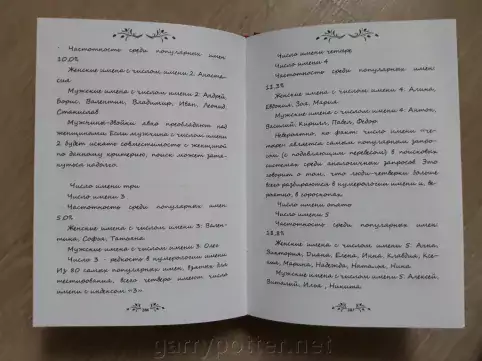 Частотность среди популярных имен:
10,0%
Женские имена с числом имени 2: Анаста-
сия
Мужские имена с числом имени 2: Андрей,
Борис, Валентин, Владимир, Иван, Леонид,
Станислав
Мужчины-двойки явно преобладают над
женщинами. Если мужчина с числом имени
2 будет искать совместимость с женщиной
по данному критерию, поиск может затя-
нуться надолго.
Число имени три
Число имени 3
Частотность среди популярных имен:
5,0%
Женские имена с числом имени 3: Вален-
тина, Софья, Татьяна
Мужские имена с числом имени 3: Олег
Число 3 - редкость в нумерологии имени
Из 80 самых популярных имен, взятых для
тестирования, всего четверо имеют число
имени с индексом «3».
Число имени четыре
Число имени 4
Частотность среди популярных имен:
11,3%
Женские имена с числом имени 4: Алина,
Евгения, Зоя, Мария
Мужские имена с числом имени 4: Антон,
Василий, Кирилл, Павел, Федор
Невероятно, но факт: число имени «че-
тыре» является самым популярным запро-
сом (с подавляющим перевесом) в поисковых
системах среди аналогичных запросов. Это
говорит о том, что люди-четверки больше
всех разбираются в нумерологии имени и, ве-
роятно, в гороскопах.
Число имени опять
Число имени 5
Частотность среди популярных имен:
18,8%
Женские имена с числом имени 5: Анна,
Виктория, Диана, Елена, Инна, Клавдия, Ксе-
ния, Марина, Надежда, Наталья, Нина
Мужские имена с числом имени 5: Алексей,
Виталий, Илья, Никита
garrypotter.net